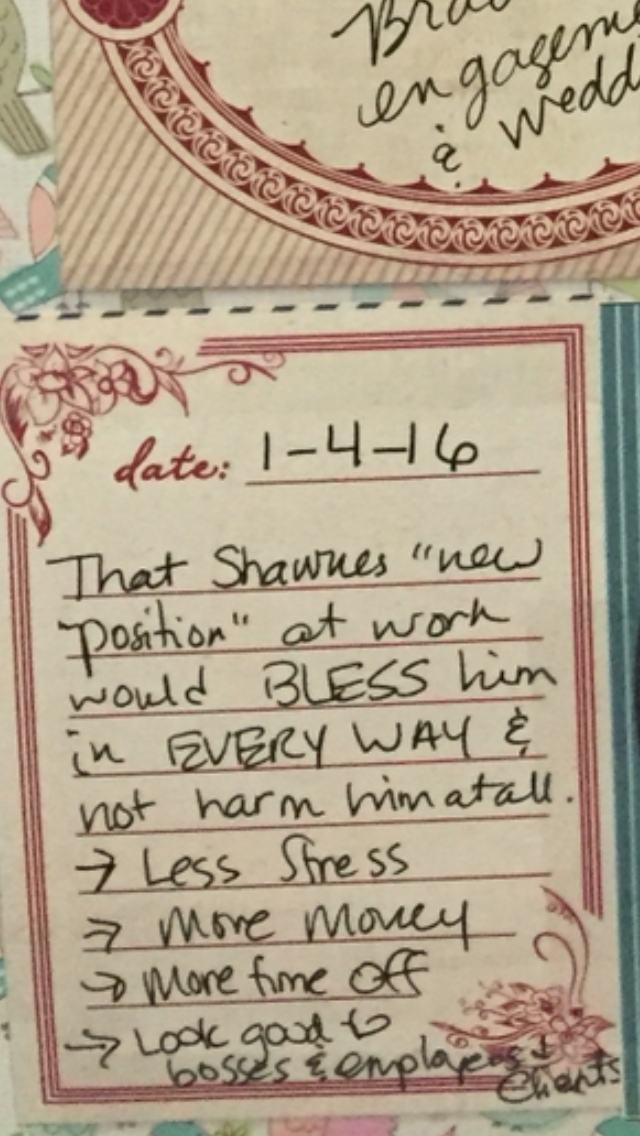 engagem
& Wedd
date: 1-4-16
That Shawnes "new
position" at work
would BLESS him
in EVERY WAY &
not harm him at all.
→ Less Stress
→ More Money
→ More time Off
→ Look good to
bosses & employers +
Clients